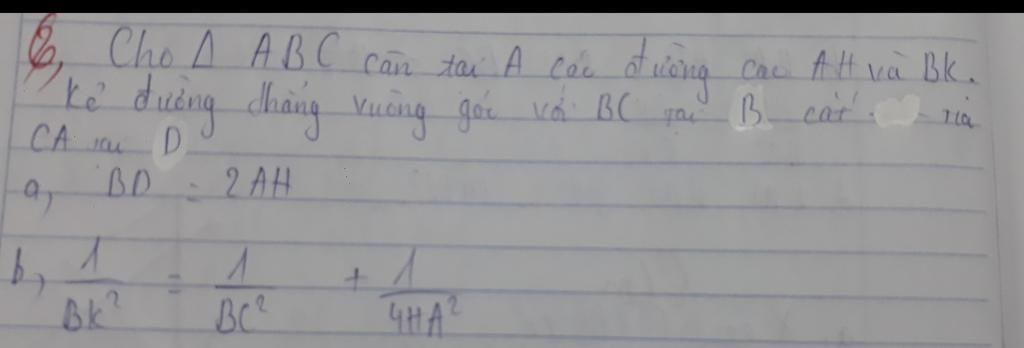 8, Cho Δ ABC cân tại A các đường cao AH và BK.
Kẻ đường thẳng vuông góc với BC tại B cắt tia
CA tại D
a, BD = 2AH
b, 1/BK² = 1/BC² + 1/4HA²